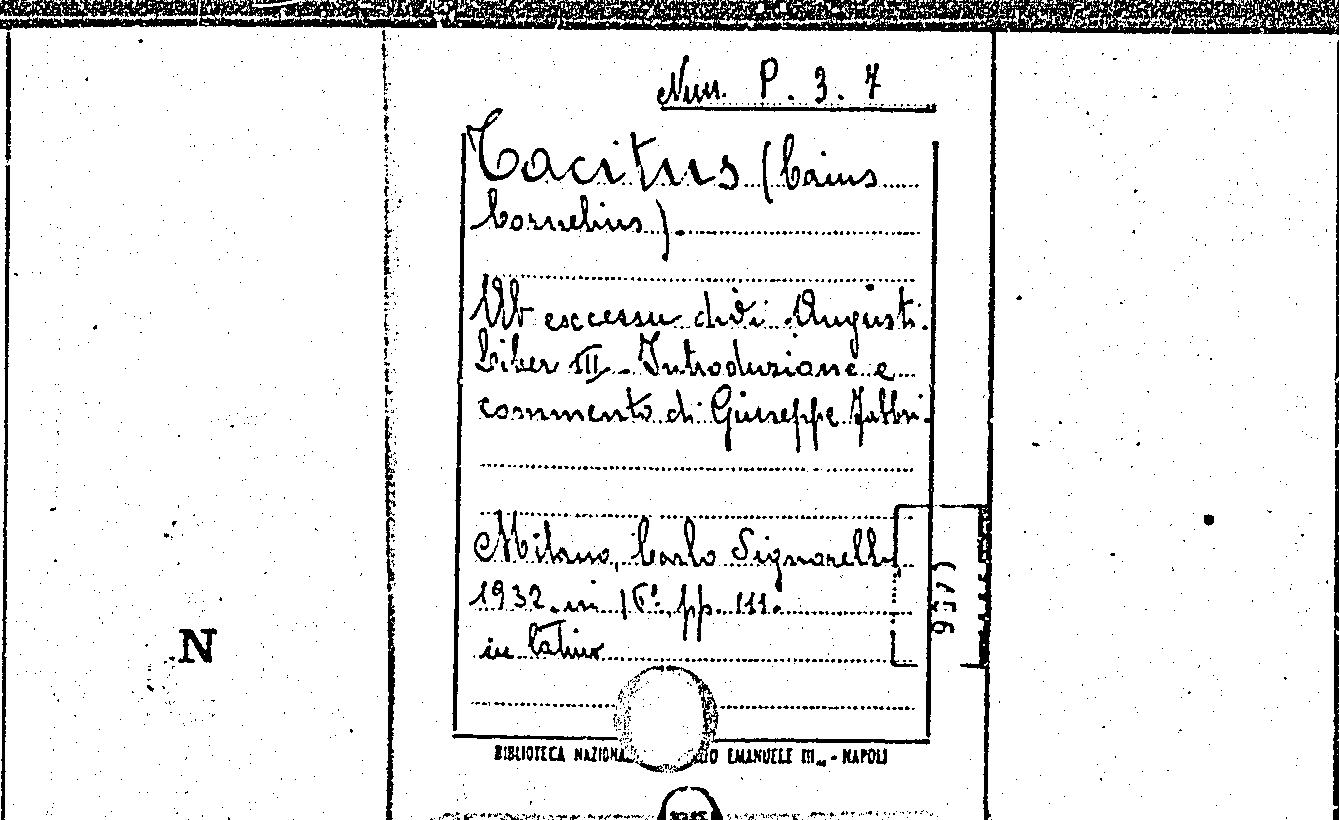 Num. P. 3. 7
Tacitus (Caius
Cornelius).
Ab excessu divi Augusti.
Liber III. Introduzione e
commento di Giuseppe Fabbri.
Milano, Carlo Signorelli,
1932. in 16°. pp. 111.
in latino
N
BIBLIOTECA EMANUELE III - NAPOLI